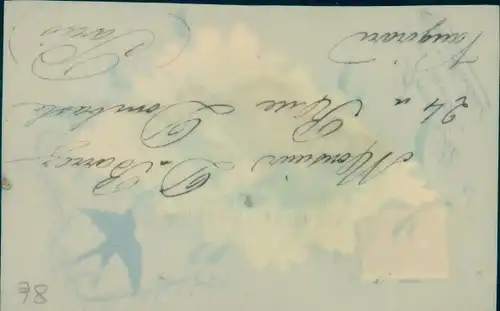 Monsieur D. Barrez
24 u Rue Dombasle
Vaugirard
(Paris)
78